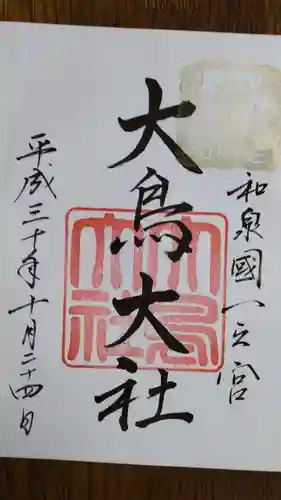 和泉國一之宮
大鳥大社
平成三十年十月二十四日
大鳥大社